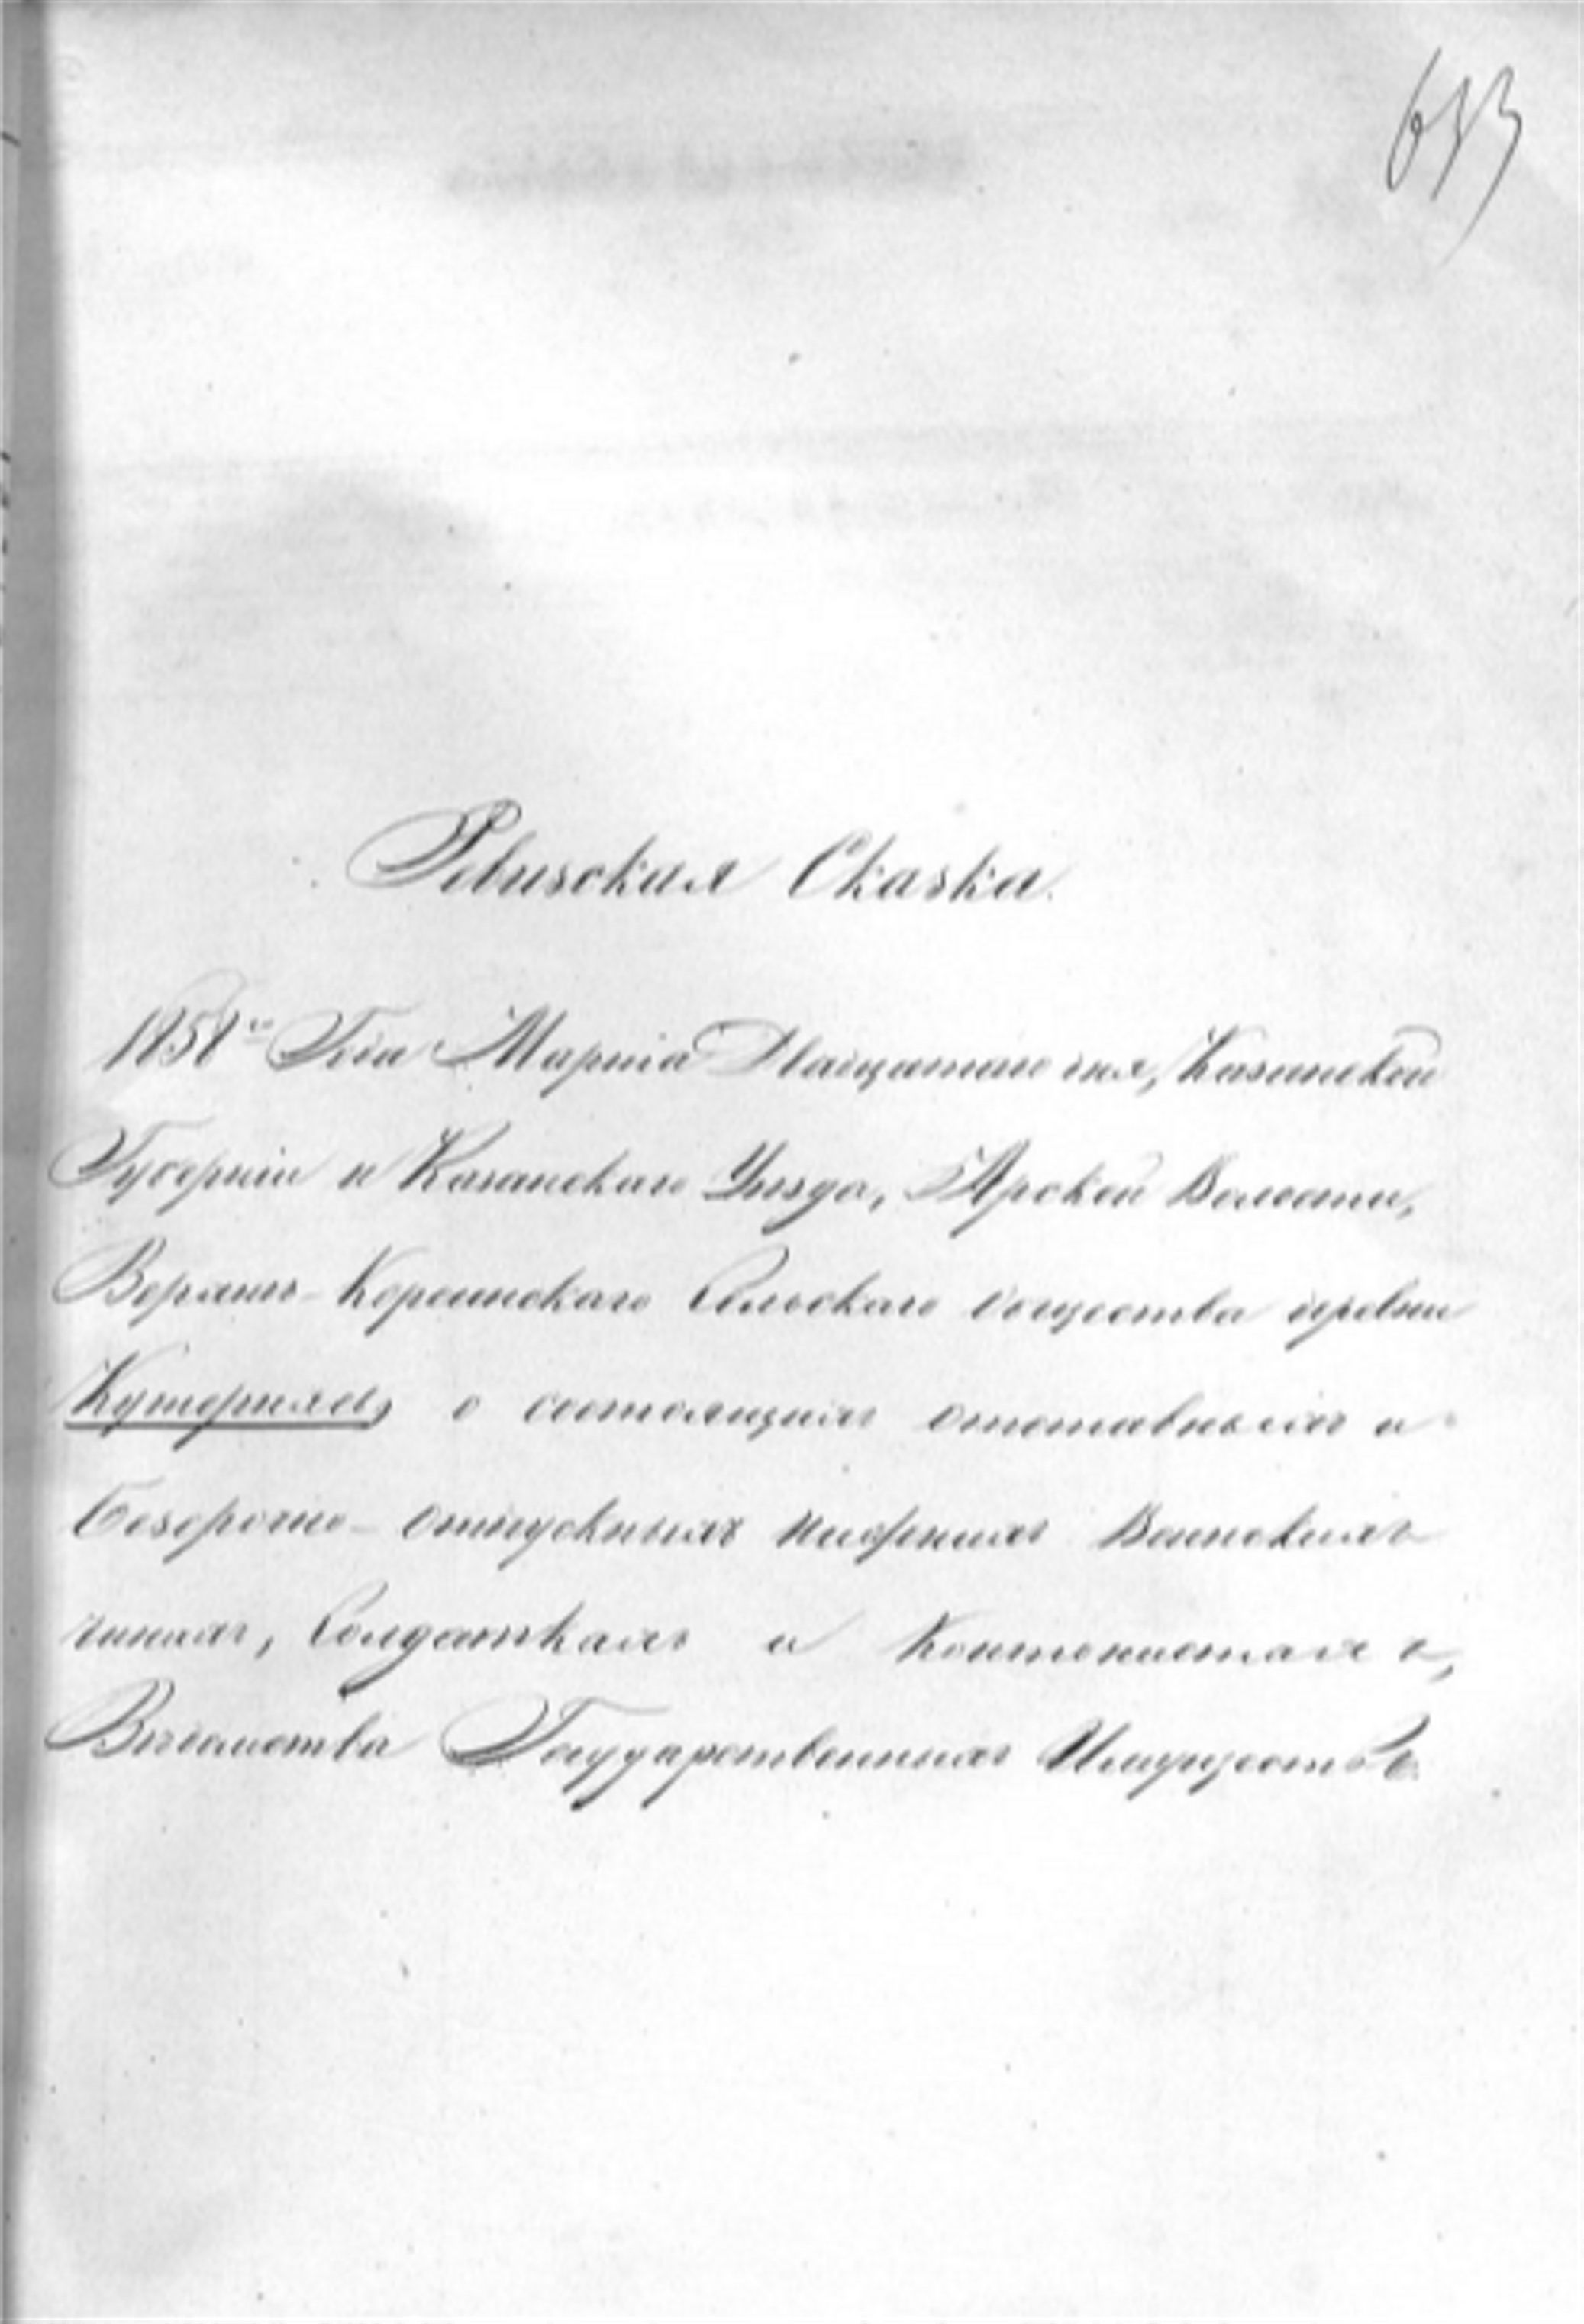 653
Ревизская Сказка.
1858го Года Марта Двадцатаго дня, Казанской
Губерніи и Казанскаго Уѣзда, Арской Волости,
Верхне-Корсинскаго Сельскаго общества деревни
Кутернясь, о состоящихъ отставныхъ и
безсрочно-отпускныхъ нижнихъ Воинскихъ
чинахъ, Солдаткахъ и Кантонистахъ,
Вѣдомства Государственныхъ Имуществъ.